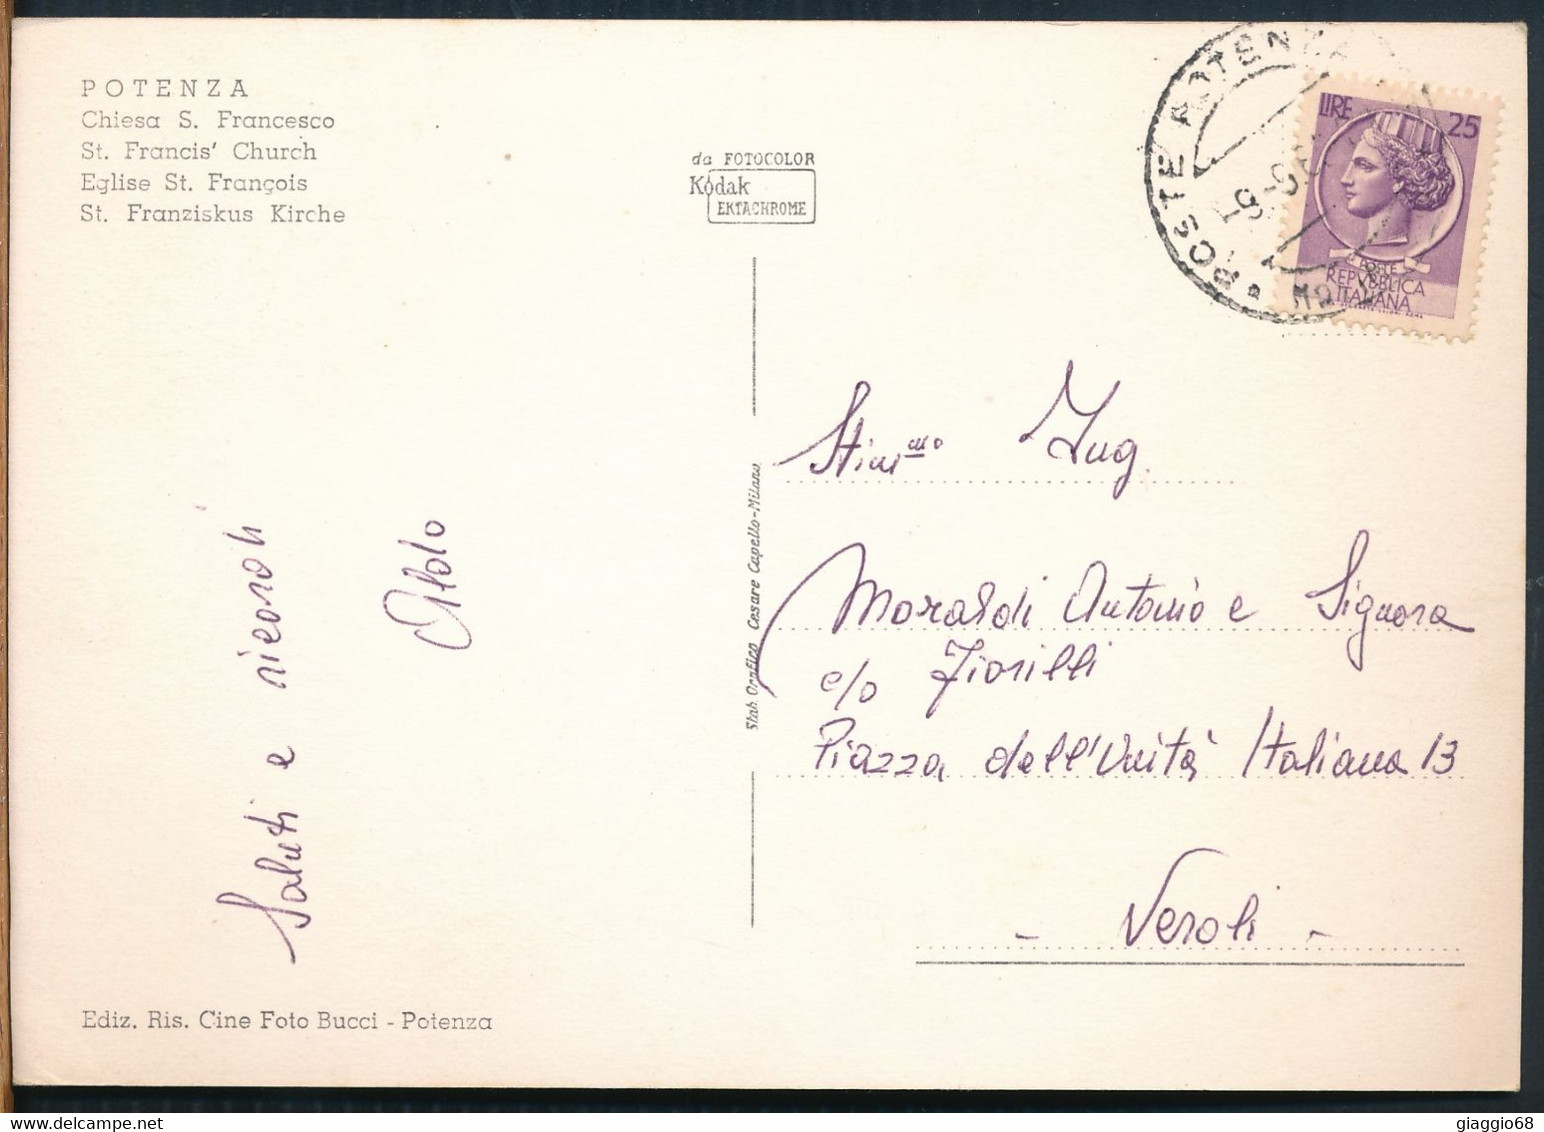 POTENZA
Chiesa S. Francesco
St. Francis' Church
Eglise St. François
St. Franziskus Kirche
da FOTOCOLOR
Kodak
EKTACHROME
POSTE POTENZA
LIRE 25
POSTE
REPVBBLICA
ITALIANA
Stim.mo Ing.
Moraldi Antonio e Signora
c/o Fiorilli
Piazza dell'Unità Italiana 13
- Veroli -
Saluti e ricordi
Aldo
Stab. Grafico Cesare Capello-Milano
Ediz. Ris. Cine Foto Bucci - Potenza
giaggio68